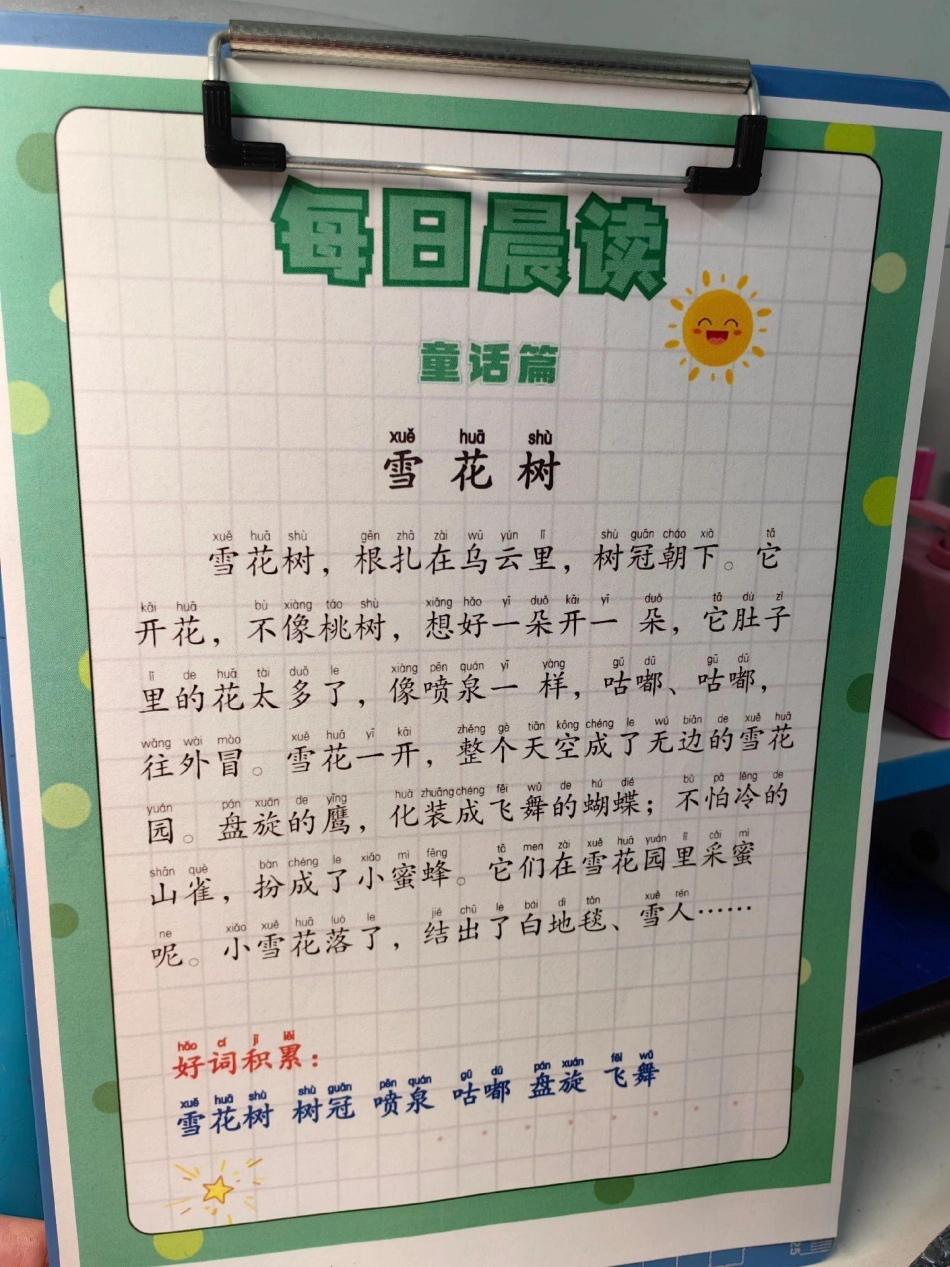 每日晨读
童话篇
xuě huā shù
雪花树
xuě huā shù gēn zhā zài wū yún lǐ shù guān cháo xià tā
雪花树，根扎在乌云里，树冠朝下。它
kāi huā bù xiàng táo shù xiǎng hǎo yī duǒ kāi yī duǒ tā dù zi
开花，不像桃树，想好一朵开一 朵，它肚子
lǐ de huā tài duō le xiàng pēn quán yī yàng gū dū gū dū
里的花太多了，像喷泉一 样，咕嘟、咕嘟，
wǎng wài mào xuě huā yī kāi zhěng gè tiān kōng chéng le wú biān de xuě huā
往外冒。雪花一开，整个天空成了无边的雪花
yuán pán xuán de yīng huà zhuāng chéng fēi wǔ de hú dié bù pà lěng de
园。盘旋的鹰，化装成飞舞的蝴蝶；不怕冷的
shān què bàn chéng le xiǎo mì fēng tā men zài xuě huā yuán lǐ cǎi mì
山雀，扮成了小蜜蜂。它们在雪花园里采蜜
ne xiǎo xuě huā luò le jié chū le bái dì tǎn xuě rén
呢。小雪花落了，结出了白地毯、雪人……
hǎo cí jī lěi
好词积累：
xuě huā shù shù guān pēn quán gū dū pán xuán fēi wǔ
雪花树 树冠 喷泉 咕嘟 盘旋 飞舞